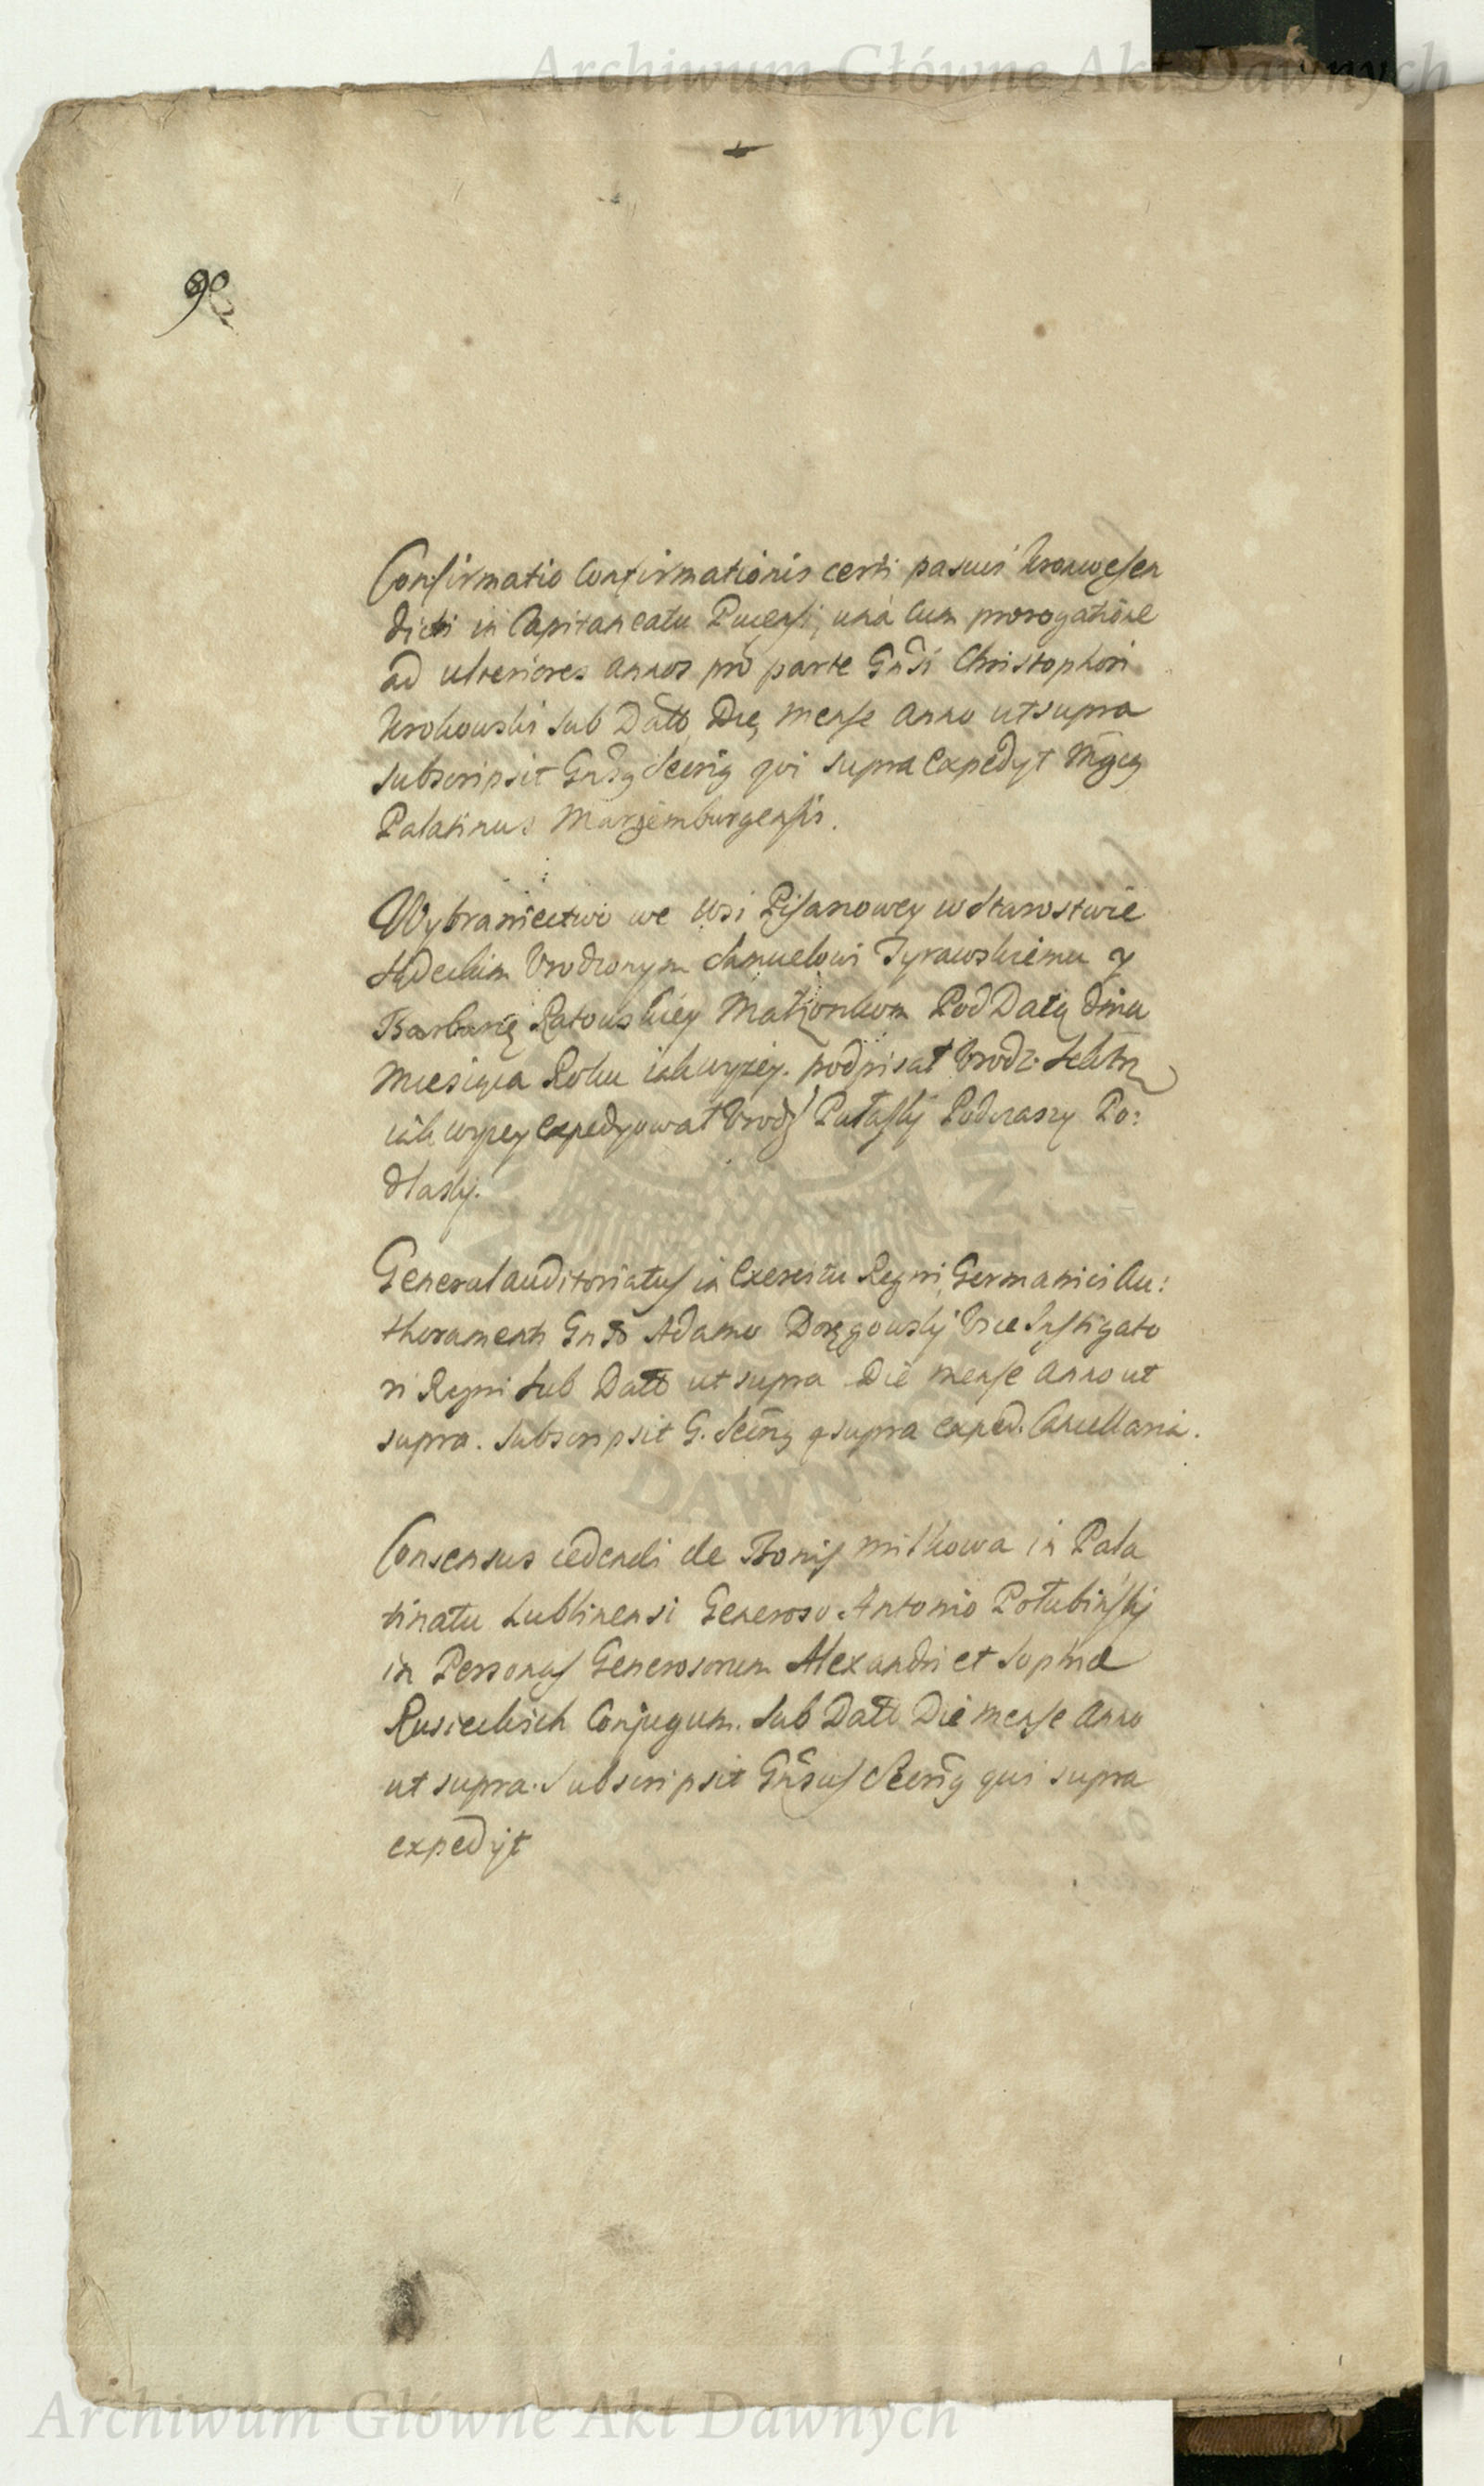 Archiwum Główne Akt Dawnych
90
Confirmatio Confirmationis certi pascui Kronwesen
dicti in Capitaneatu Pucensi, unà Cum prorogatione
ad ulteriores annos pro parte Gnsi Christophori
Krokowski sub Datto, Die, mense Anno ut supra
subscripsit Gnsq Secriq qvi supra Expedyt Mgcq
Palatinus Marjemburgensis.
Wybraniectwo we Wsi Pisarowey w Starostwie
Urodzonym Samuelowi Tyrawskiemu y
Barbarze Ratowskiey Małżonkom Pod Datą dnia
Miesiąca Roku iak wyżey. podpisał Urodz. Sekttrz
iak wyżey Expedyował Urodz Pułaskj Podczaszy Po:
dlaskj.
Generalauditoriatus in Exercitu Regni, Germanici Au:
thoramenti Gnso Adamo Vice Instigato
ri Regni Sub Datto ut supra Die mense Anno ut
supra. Subscripsit G. Secriq q supra exped. Cancellaria.
Consensus cedendi de Bonis Miłkowa in Pala
tinatu Lublinensi Generoso Antonio Połubińskj
in Personas Generosorum Alexandri et Sophiæ
Rusieckich Conjugum. Sub Datto Die mense Anno
ut supra. Subscripsit Gnsus Secriq qui supra
expedyt
DAWNYCH
Archiwum Główne Akt Dawnych